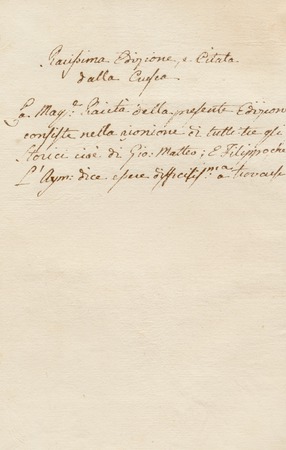 Rarissima Edizione, e Citata
dalla Crusca
La Mag.e Rarità della presente Edizione
consiste nella riunione di tutti tre gli
Storici cioè di Gio: Matteo; E Filippo che
L'Aym: dice essere difficilis.ma a trovarsi